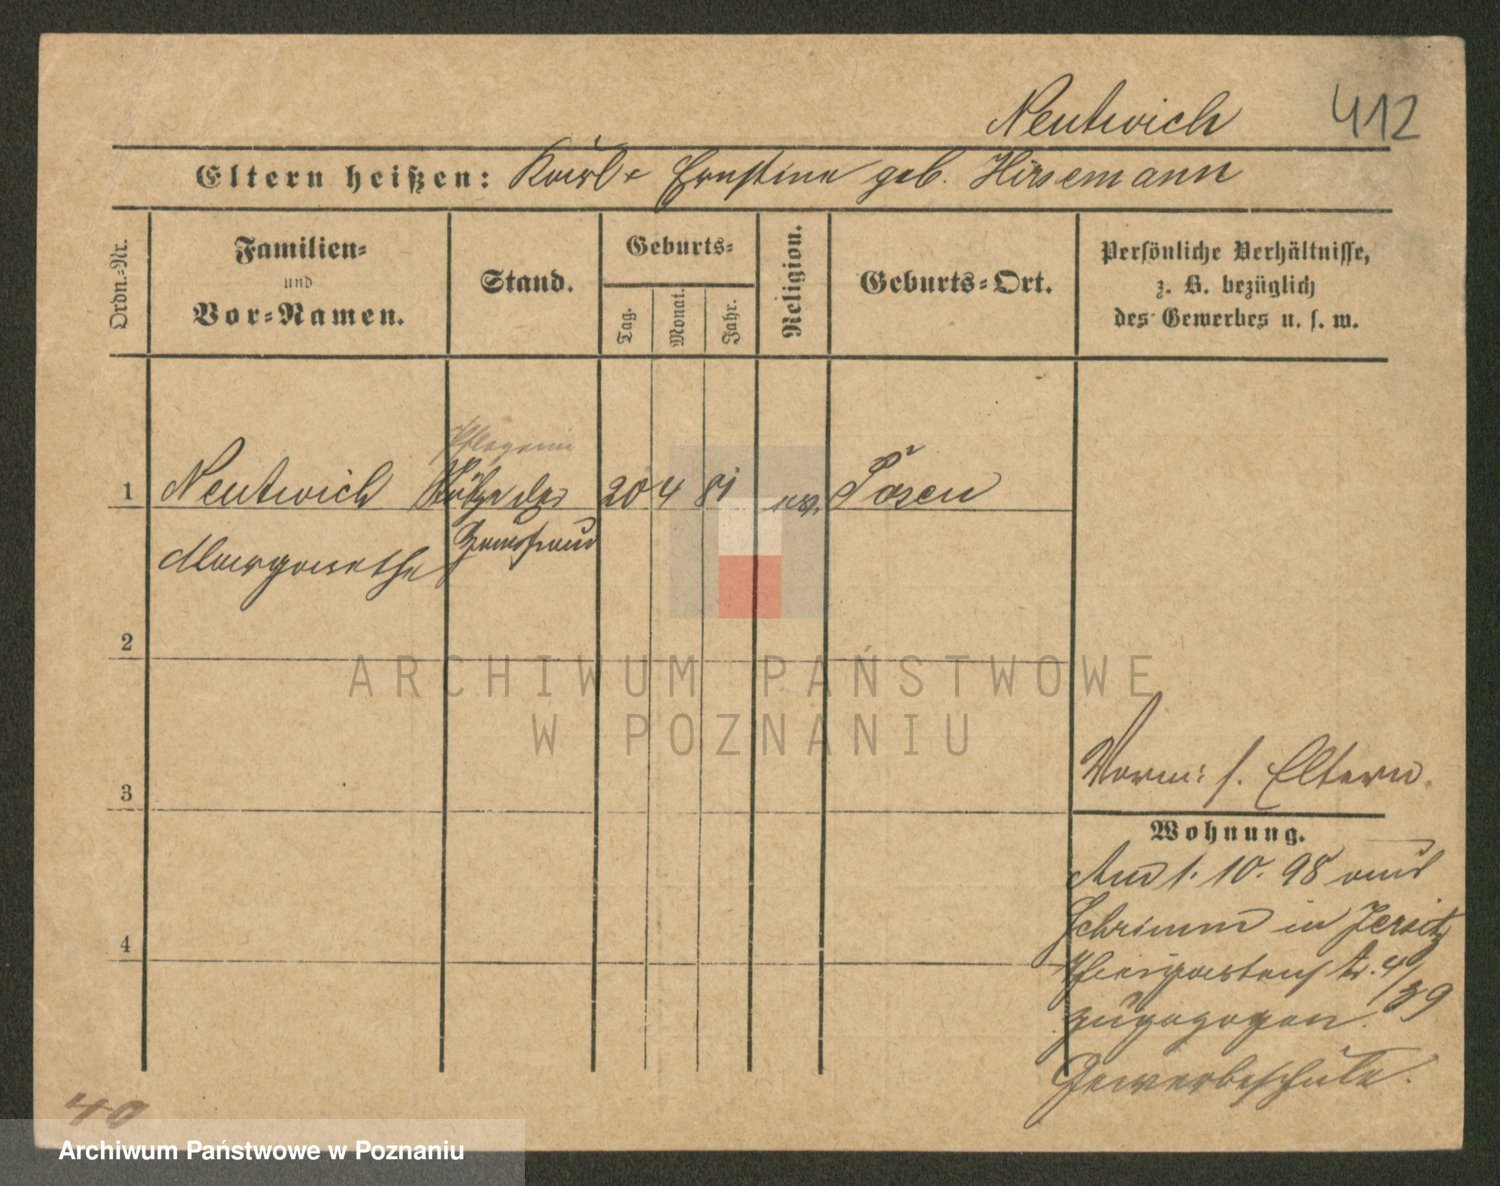 Neutwich
412
Eltern heißen: Karl u. Ernstine geb. Hirsemann
Ordn.-Nr.
Familien-
und
Vor-Namen.
Stand.
Geburts-
Tag.
Monat.
Jahr.
Religion.
Geburts-Ort.
Persönliche Verhältnisse,
z. B. bezüglich
des Gewerbes u. s. w.
1 Neutwich Stütze der 20 4 81 ev. Posen
Margarethe Hausfrau
2
3
4
Vorm: s. Eltern.
Wohnung.
Am 1. 10. 98 aus
Schrimm in Jersitz
4/39
zugezogen.
Gewerbeschule.
40
ARCHIWUM PAŃSTWOWE
W POZNANIU
Archiwum Państwowe w Poznaniu